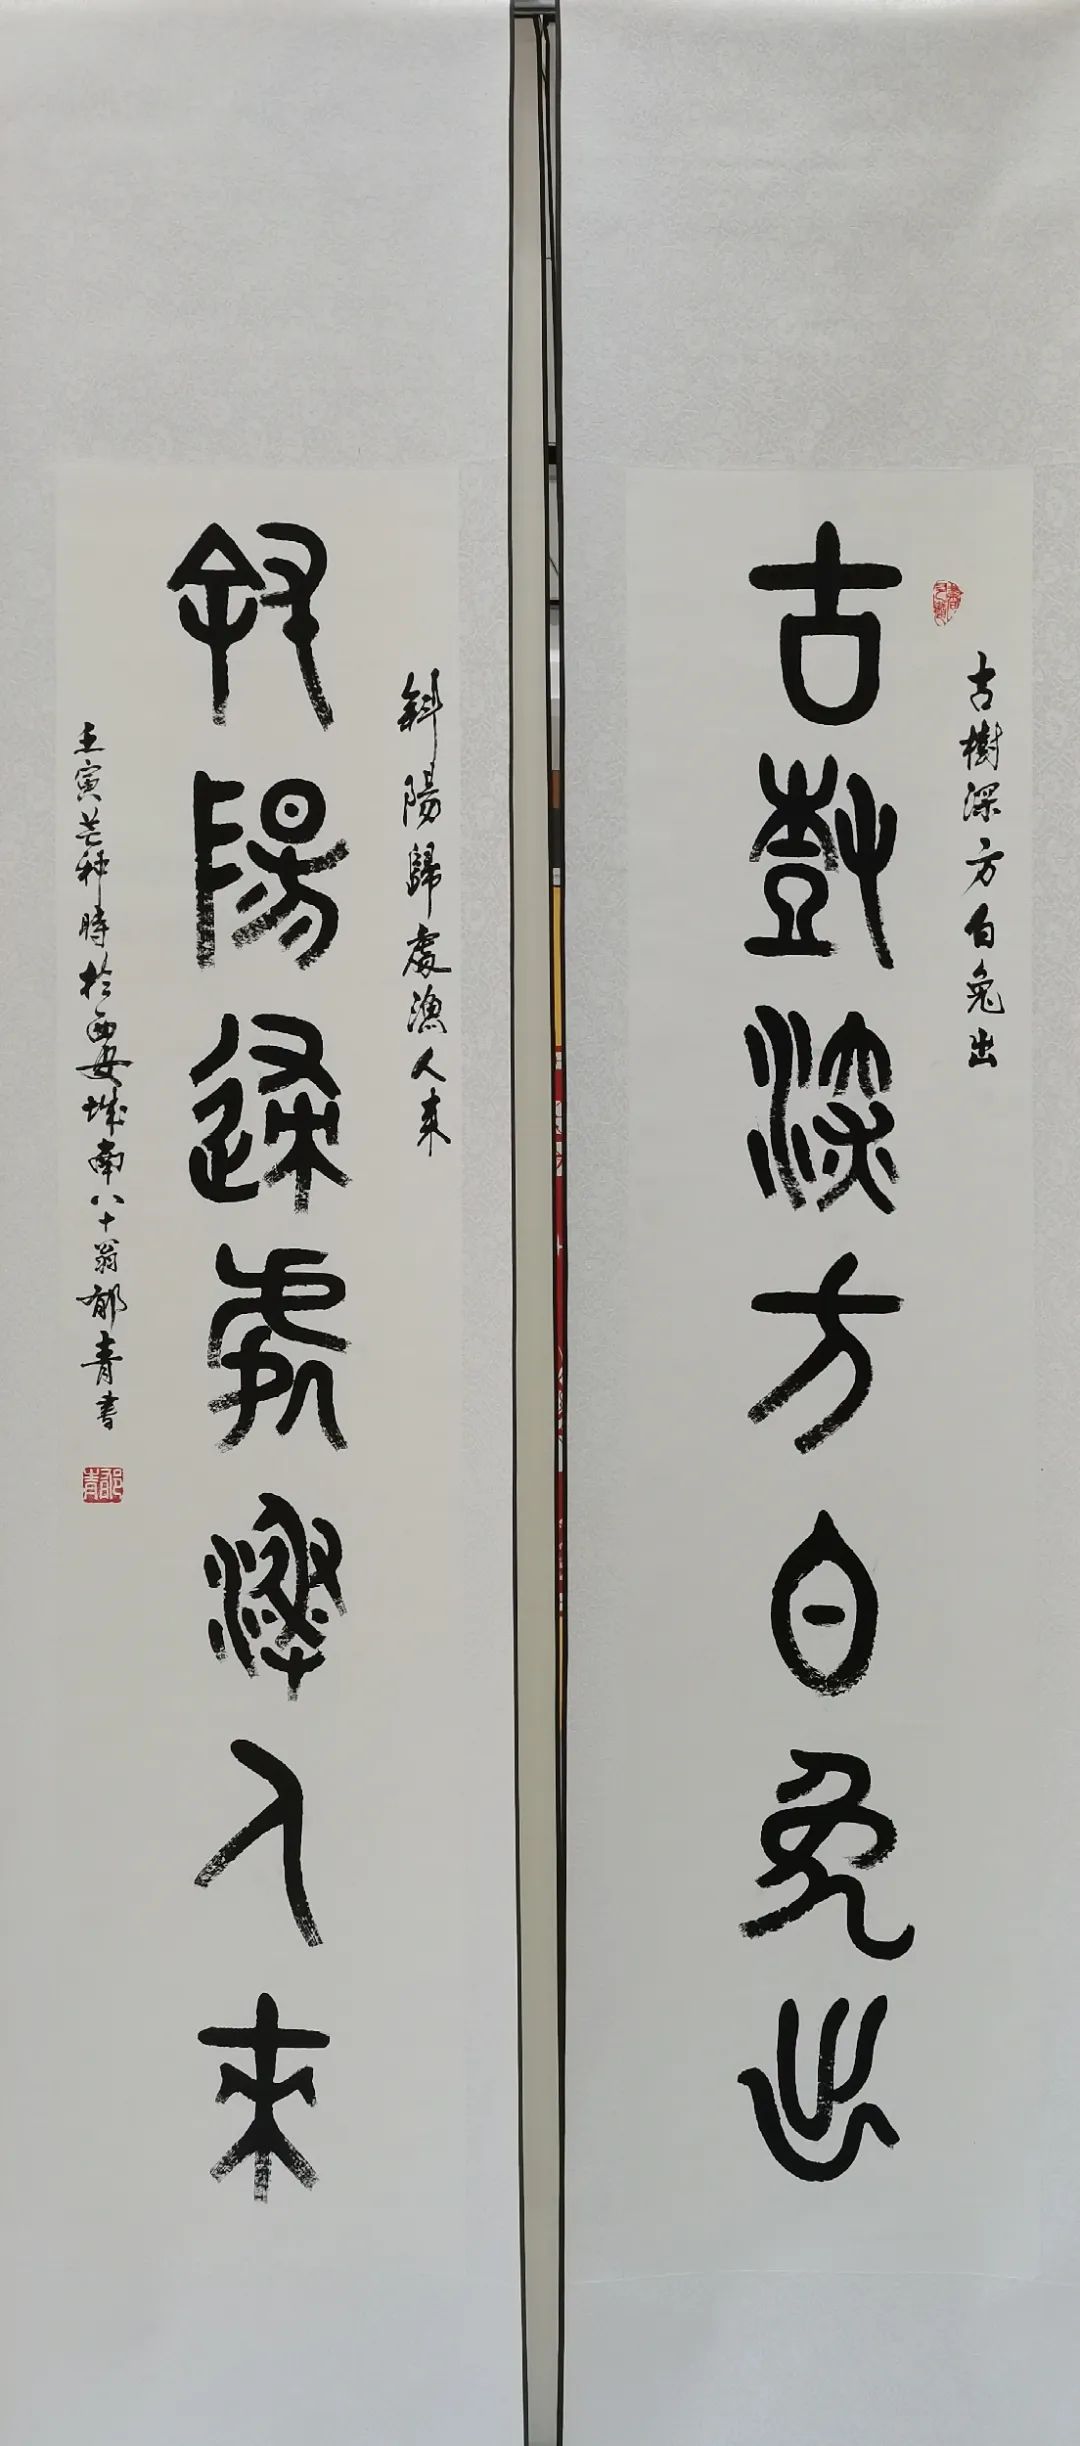 古樹深方白兔出
古樹深方白兔出
斜陽歸處漁人來
斜陽歸處漁人來
壬寅芒种時於西安城南八十翁郁青書
郁青